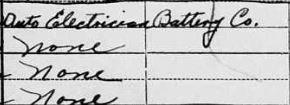 Auto Electrician Battery Co.
None
None
None